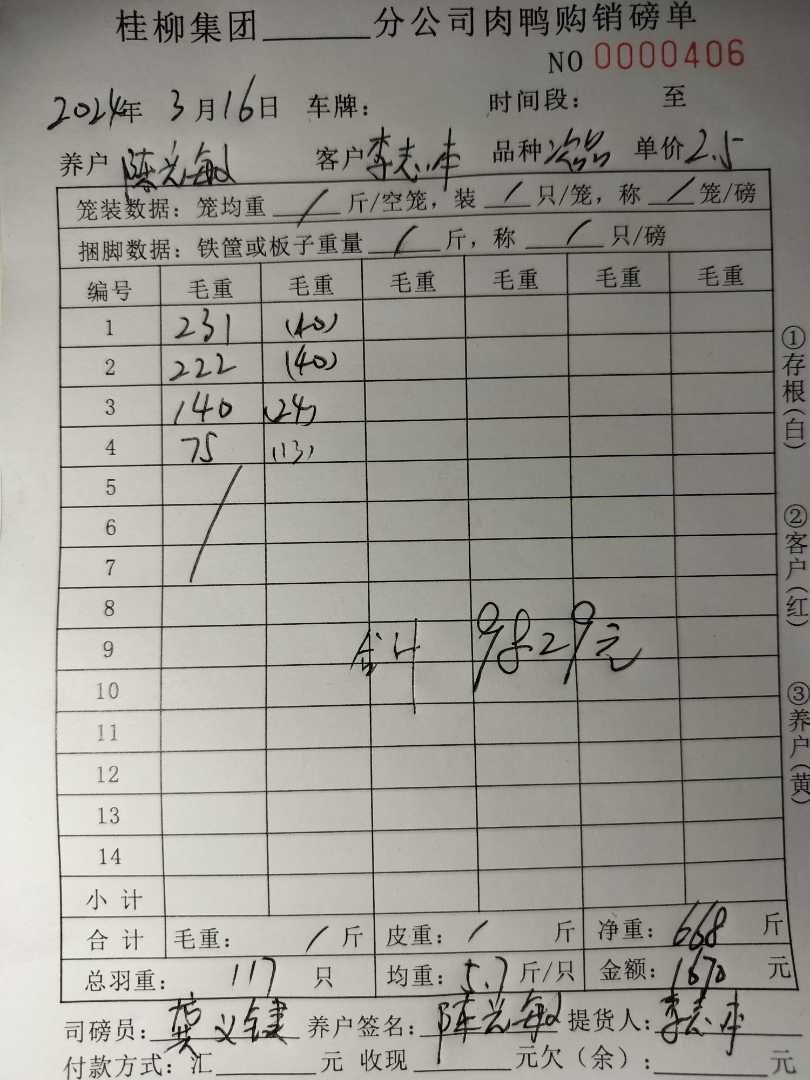 桂柳集团______分公司肉鸭购销磅单
NO 0000406
2024年 3月16日 车牌: 时间段: 至
养户 陈光敏 客户 李志 品种 次品 单价 2.5
笼装数据: 笼均重 / 斤/空笼, 装 / 只/笼, 称 / 笼/磅
捆脚数据: 铁筐或板子重量 / 斤, 称 / 只/磅
编号 毛重 毛重 毛重 毛重 毛重 毛重
1 231 (40)
2 222 (40)
3 140 (24)
4 75 (13)
5
6
7
8
9
合计 元
10
11
12
13
14
小计
合计 毛重: / 斤 皮重: / 斤 净重: 668 斤
总羽重: 117 只 均重: 5.7 斤/只 金额: 1670 元
司磅员: 义 养户签名: 陈光敏 提货人: 李志
付款方式: 汇______元 收现______元欠(余):______元
①存根(白) ②客户(红) ③养户(黄)